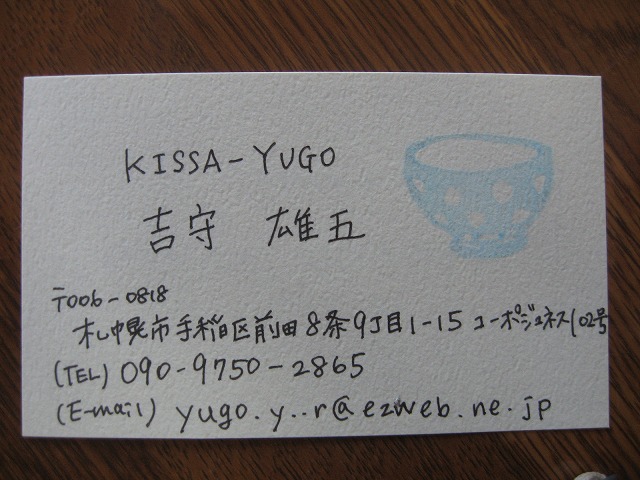 KISSA-YUGO
吉守 雄五
〒006-0818
札幌市手稲区前田8条9丁目1-15 コーポジュネス102号
(TEL) 090-9750-2865
(E-mail) yugo.y..r@ezweb.ne.jp